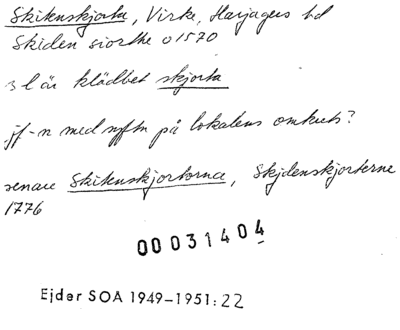 Skitenskjorta, Virke, Harjagers hd
Skiden siorthe o 1570
s l är klädbet skjorta
jf-n med syftn på lokalens omkrets?
senare Skitenskjortorna, Skjdenskjorterne
1776
00031404
Ejder SOA 1949-1951:22